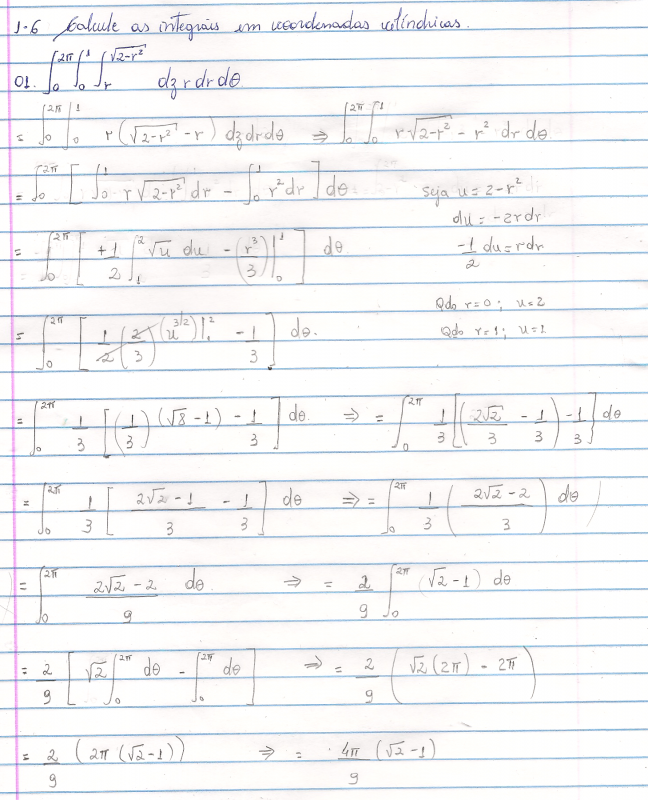 1-6 Calcule as integrais em coordenadas cilíndricas.
01. ∫₀^2π ∫₀^1 ∫_r^√(2-r²) dz r dr dθ
= ∫₀^2π ∫₀^1 r(√(2-r²) - r) dz dr dθ ⇒ ∫₀^2π ∫₀^1 r√(2-r²) - r² dr dθ
= ∫₀^2π [ ∫₀^1 r√(2-r²) dr - ∫₀^1 r² dr ] dθ seja u = 2-r²
du = -2rdr
= ∫₀^2π [ +1/2 ∫₁^2 √u du - (r³/3)|₀^1 ] dθ -1/2 du = rdr
Qdo r=0; u=2
= ∫₀^2π [ 1/2 (2/3) (u^3/2)|₁^2 - 1/3 ] dθ. Qdo r=1; u=1
= ∫₀^2π 1/3 [ (1/3) (√8 - 1) - 1/3 ] dθ. ⇒ = ∫₀^2π 1/3 [ (2√2/3 - 1/3) - 1/3 ] dθ
= ∫₀^2π 1/3 [ (2√2 - 1)/3 - 1/3 ] dθ ⇒ = ∫₀^2π 1/3 ( (2√2 - 2)/3 ) dθ
= ∫₀^2π (2√2 - 2)/9 dθ ⇒ = 2/9 ∫₀^2π (√2 - 1) dθ
= 2/9 [ √2 ∫₀^2π dθ - ∫₀^2π dθ ] ⇒ = 2/9 ( √2 (2π) - 2π )
= 2/9 (2π (√2 - 1)) ⇒ = 4π/9 (√2 - 1)